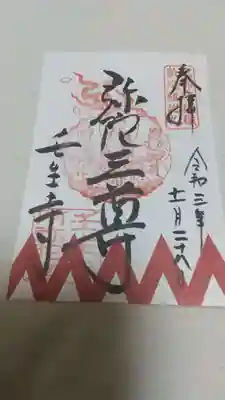 奉拝
令和三年
十一月二十八日
弥陀三尊
壬生寺